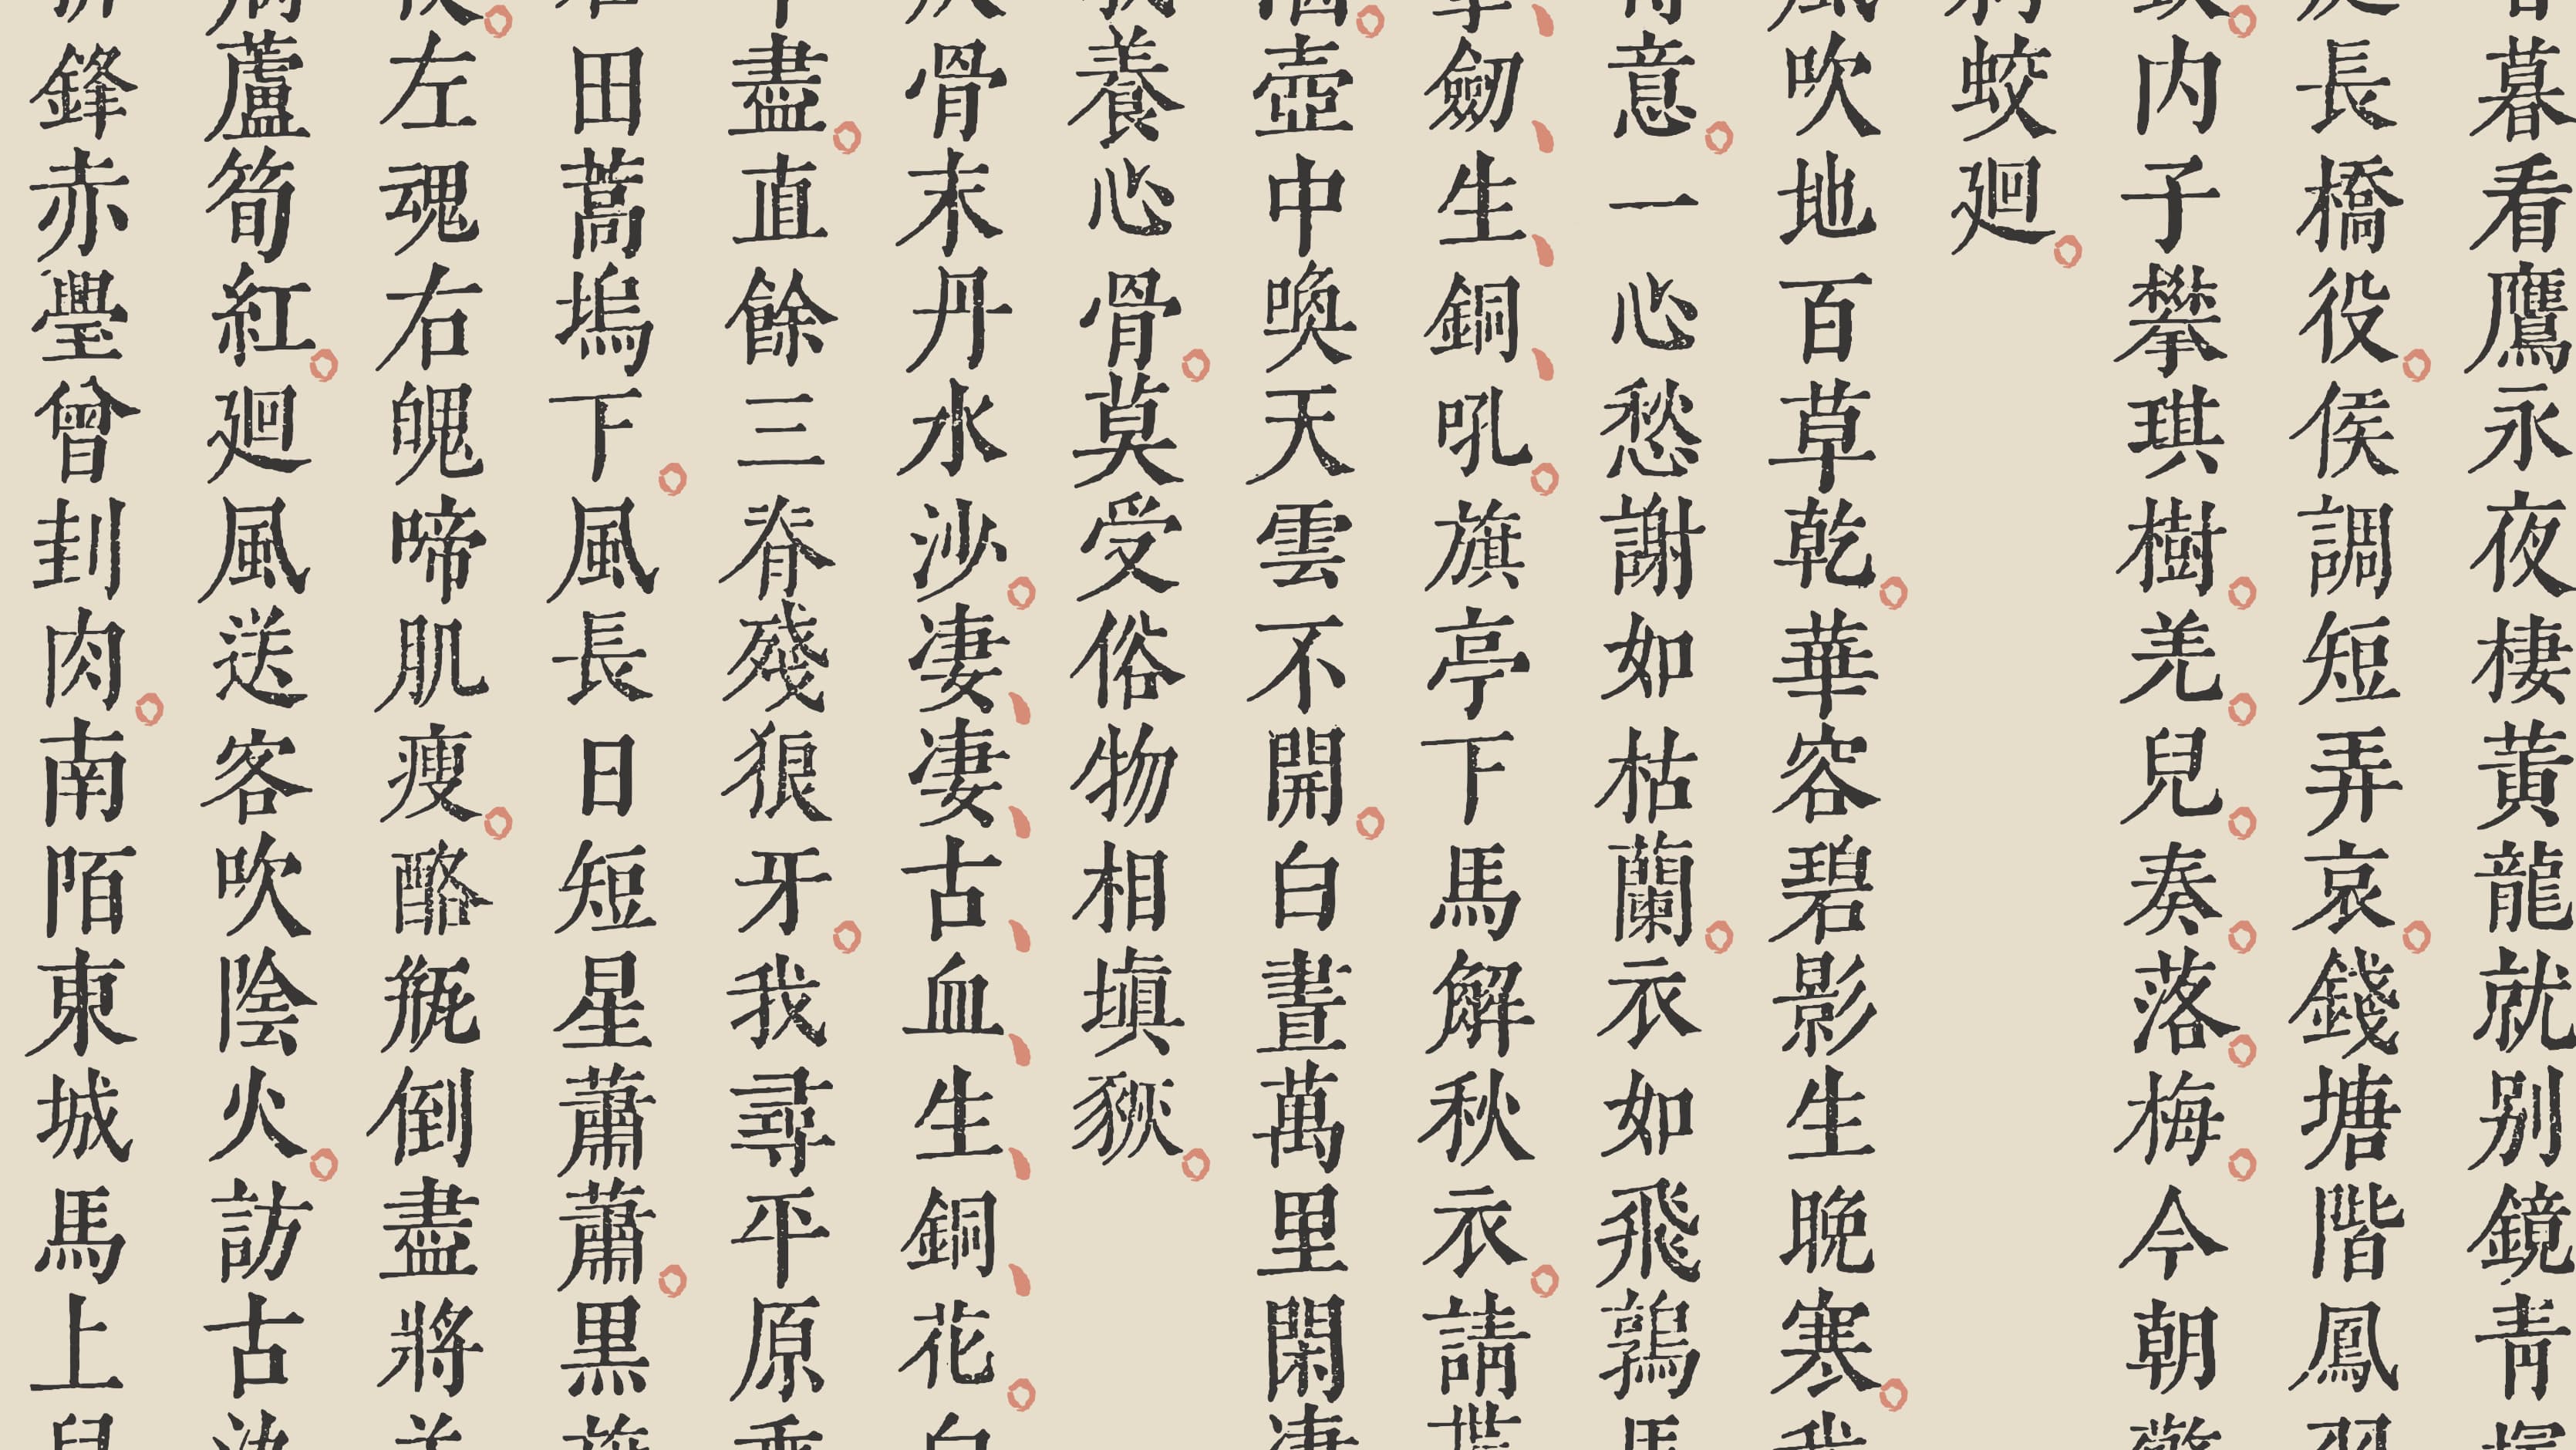 暮看鷹永夜棲黃龍就别鏡青
長橋役。侯調短弄哀。錢塘階鳳
内子攀琪樹。羌。兒。奏。落。梅。今朝
蛟廻。
吹地百草乾。華容碧影生晩寒。我
意。一心愁謝如枯蘭。衣如飛鶉馬
劒、生、銅、吼。旗亭下馬解秋衣。請
壺中喚天雲不開。白晝萬里閑凄
養心骨。莫受俗物相塡豗。
骨末丹水沙。凄、凄、古、血、生、銅、花。白
盡。直餘三脊殘狼牙。我尋平原乘
田蒿塢下。風長日短星蕭蕭。黒旗
左魂右魄啼肌瘦。酪瓶倒盡將羊
蘆筍紅。廻風送客吹陰火。訪古
鋒赤璺曾刲肉。南陌東城馬上兒